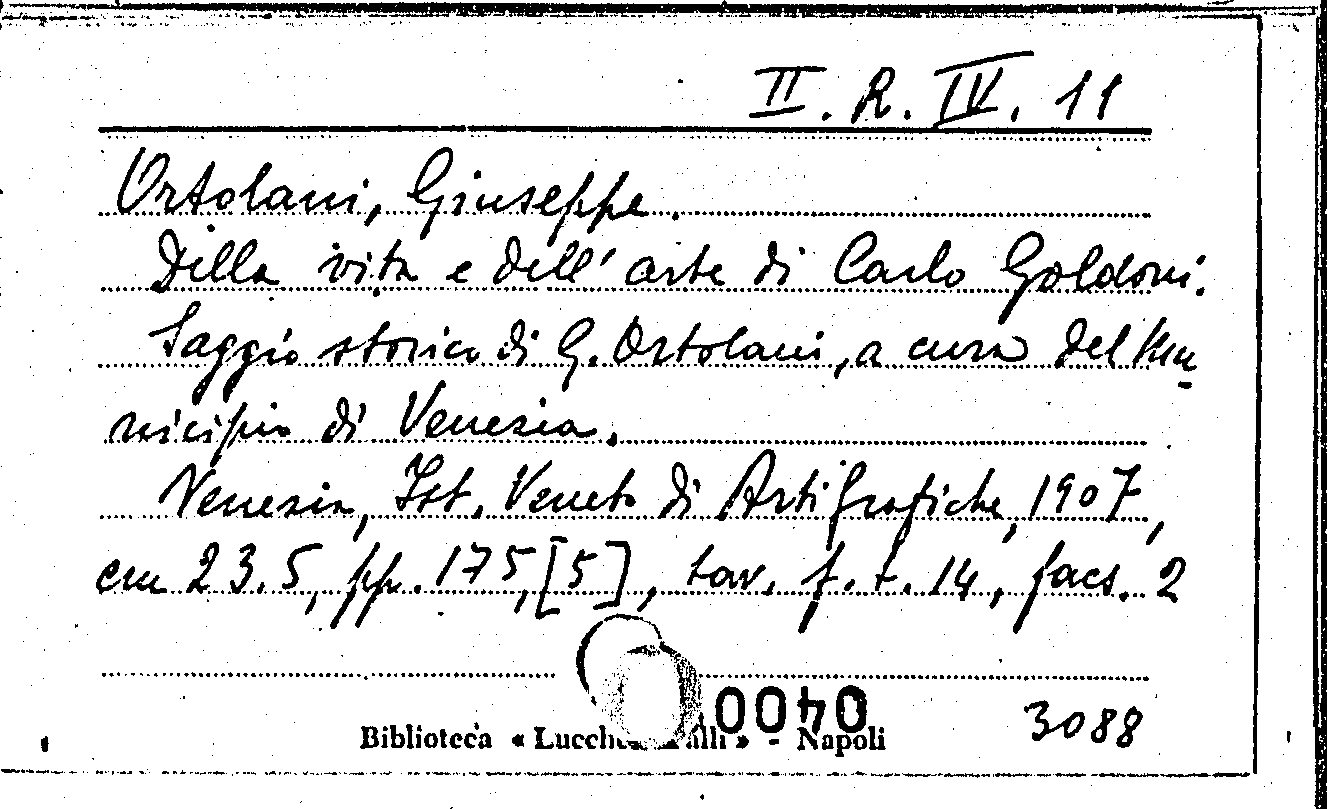 II. R. IV. 11
Ortolani, Giuseppe.
Della vita e dell'arte di Carlo Goldoni.
Saggio storico di G. Ortolani, a cura del Mu-
nicipio di Venezia.
Venezia, Ist. Veneto di Arti Grafiche, 1907,
cm 23.5, pp. 175, [5], tav. f. t. 14, facs. 2
0400
3088
Biblioteca « » - Napoli